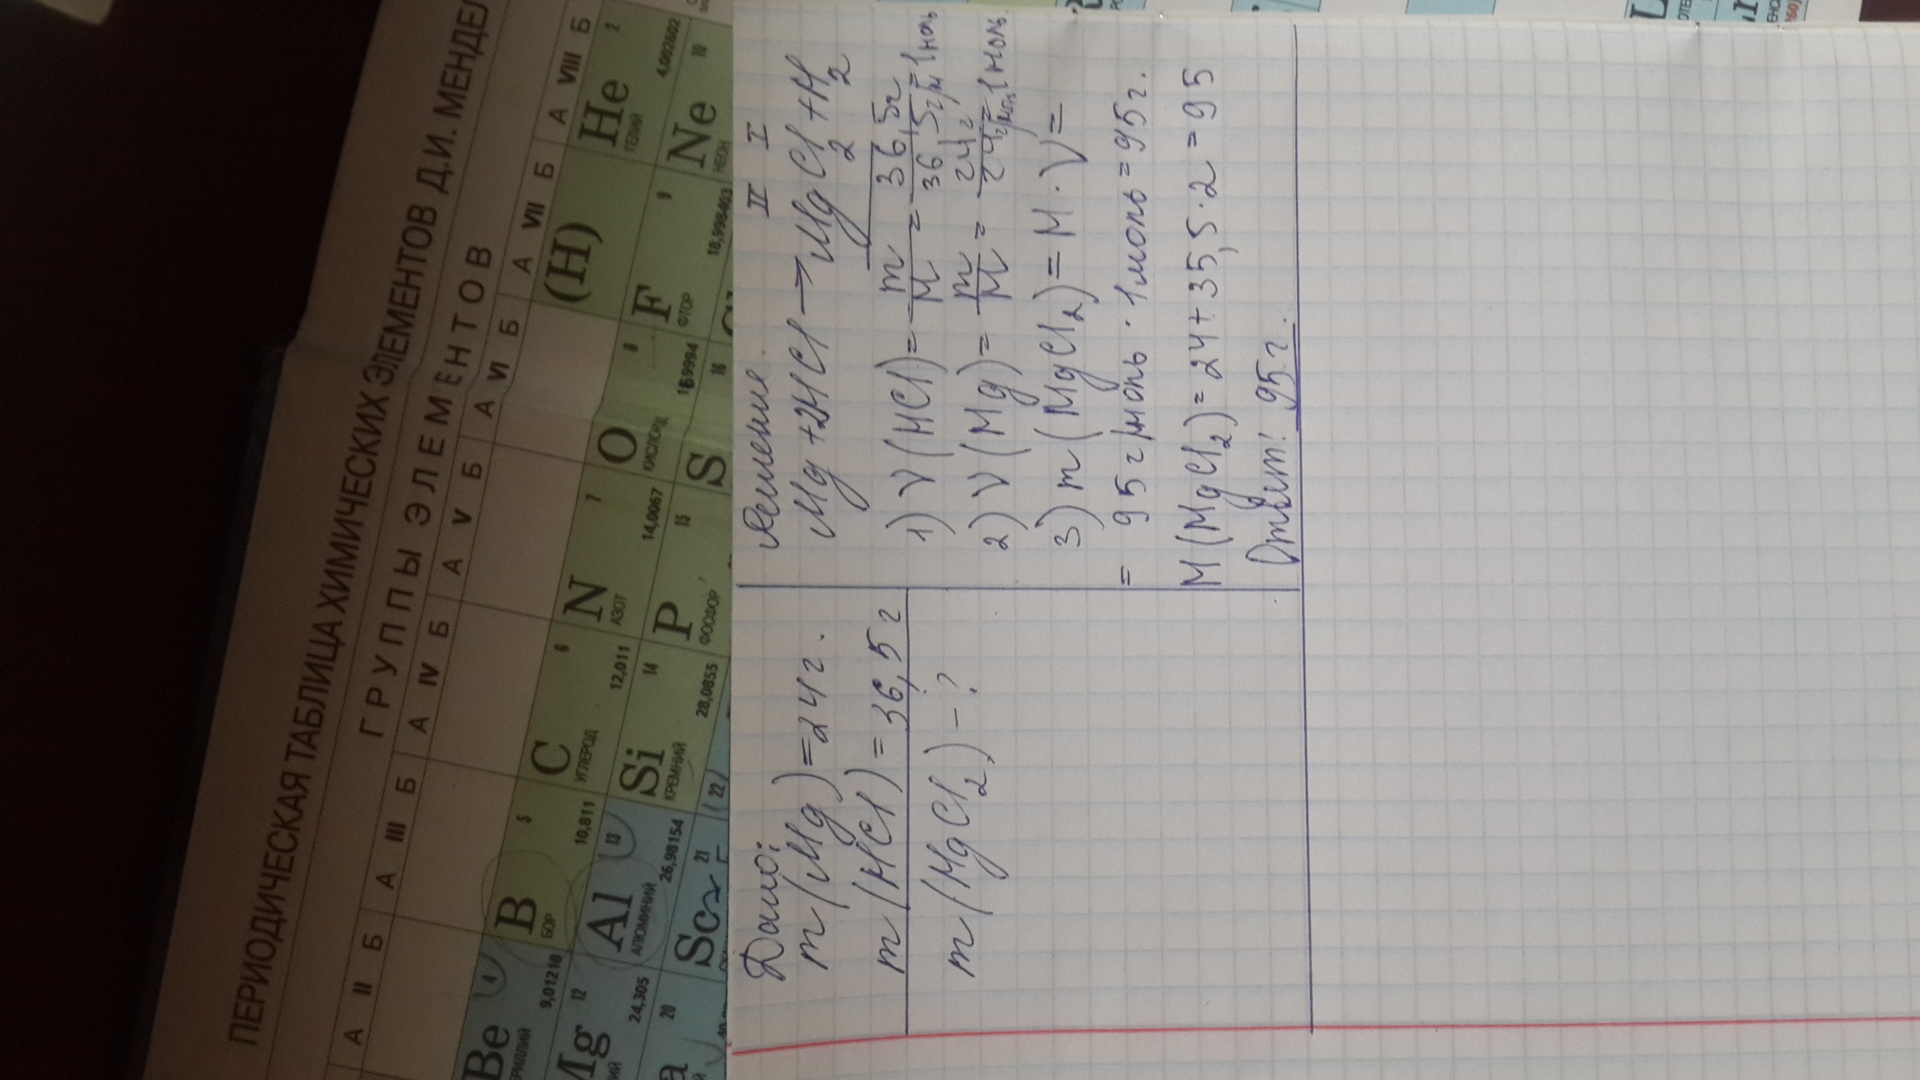 ПЕРИОДИЧЕСКАЯ ТАБЛИЦА ХИМИЧЕСКИХ ЭЛЕМЕНТОВ Д.И. МЕНДЕЛ
ГРУППЫ ЭЛЕМЕНТОВ
А II Б А III Б А IV Б А V Б А VI Б А VII Б А VIII Б
(H) He 2
ГЕЛИЙ 4,002602
Be 4 B 5 C 6 N 7 O 8 F 9 Ne 10
9,01218 БОР 10,811 УГЛЕРОД 12,011 АЗОТ 14,0067 КИСЛОРОД 15,9994 ФТОР 18,998403 НЕОН
Mg 12 Al 13 Si 14 P 15 S 16
24,305 АЛЮМИНИЙ 26,98154 КРЕМНИЙ 28,0855 ФОСФОР
20 Sc 21 22
Дано:
m(Mg)=24г.
m(HCl)=36,5г
m(MgCl2)-?
Решение
II I
Mg+2HCl→MgCl2+H2
1) ν(HCl)=m/M=36,5г/36,5г/м=1моль
2) ν(Mg)=m/M=24г/24г/моль=1моль.
3) m(MgCl2)=M·ν=
=95г/моль·1моль=95г.
M(MgCl2)=24+35,5·2=95
Ответ: 95г.